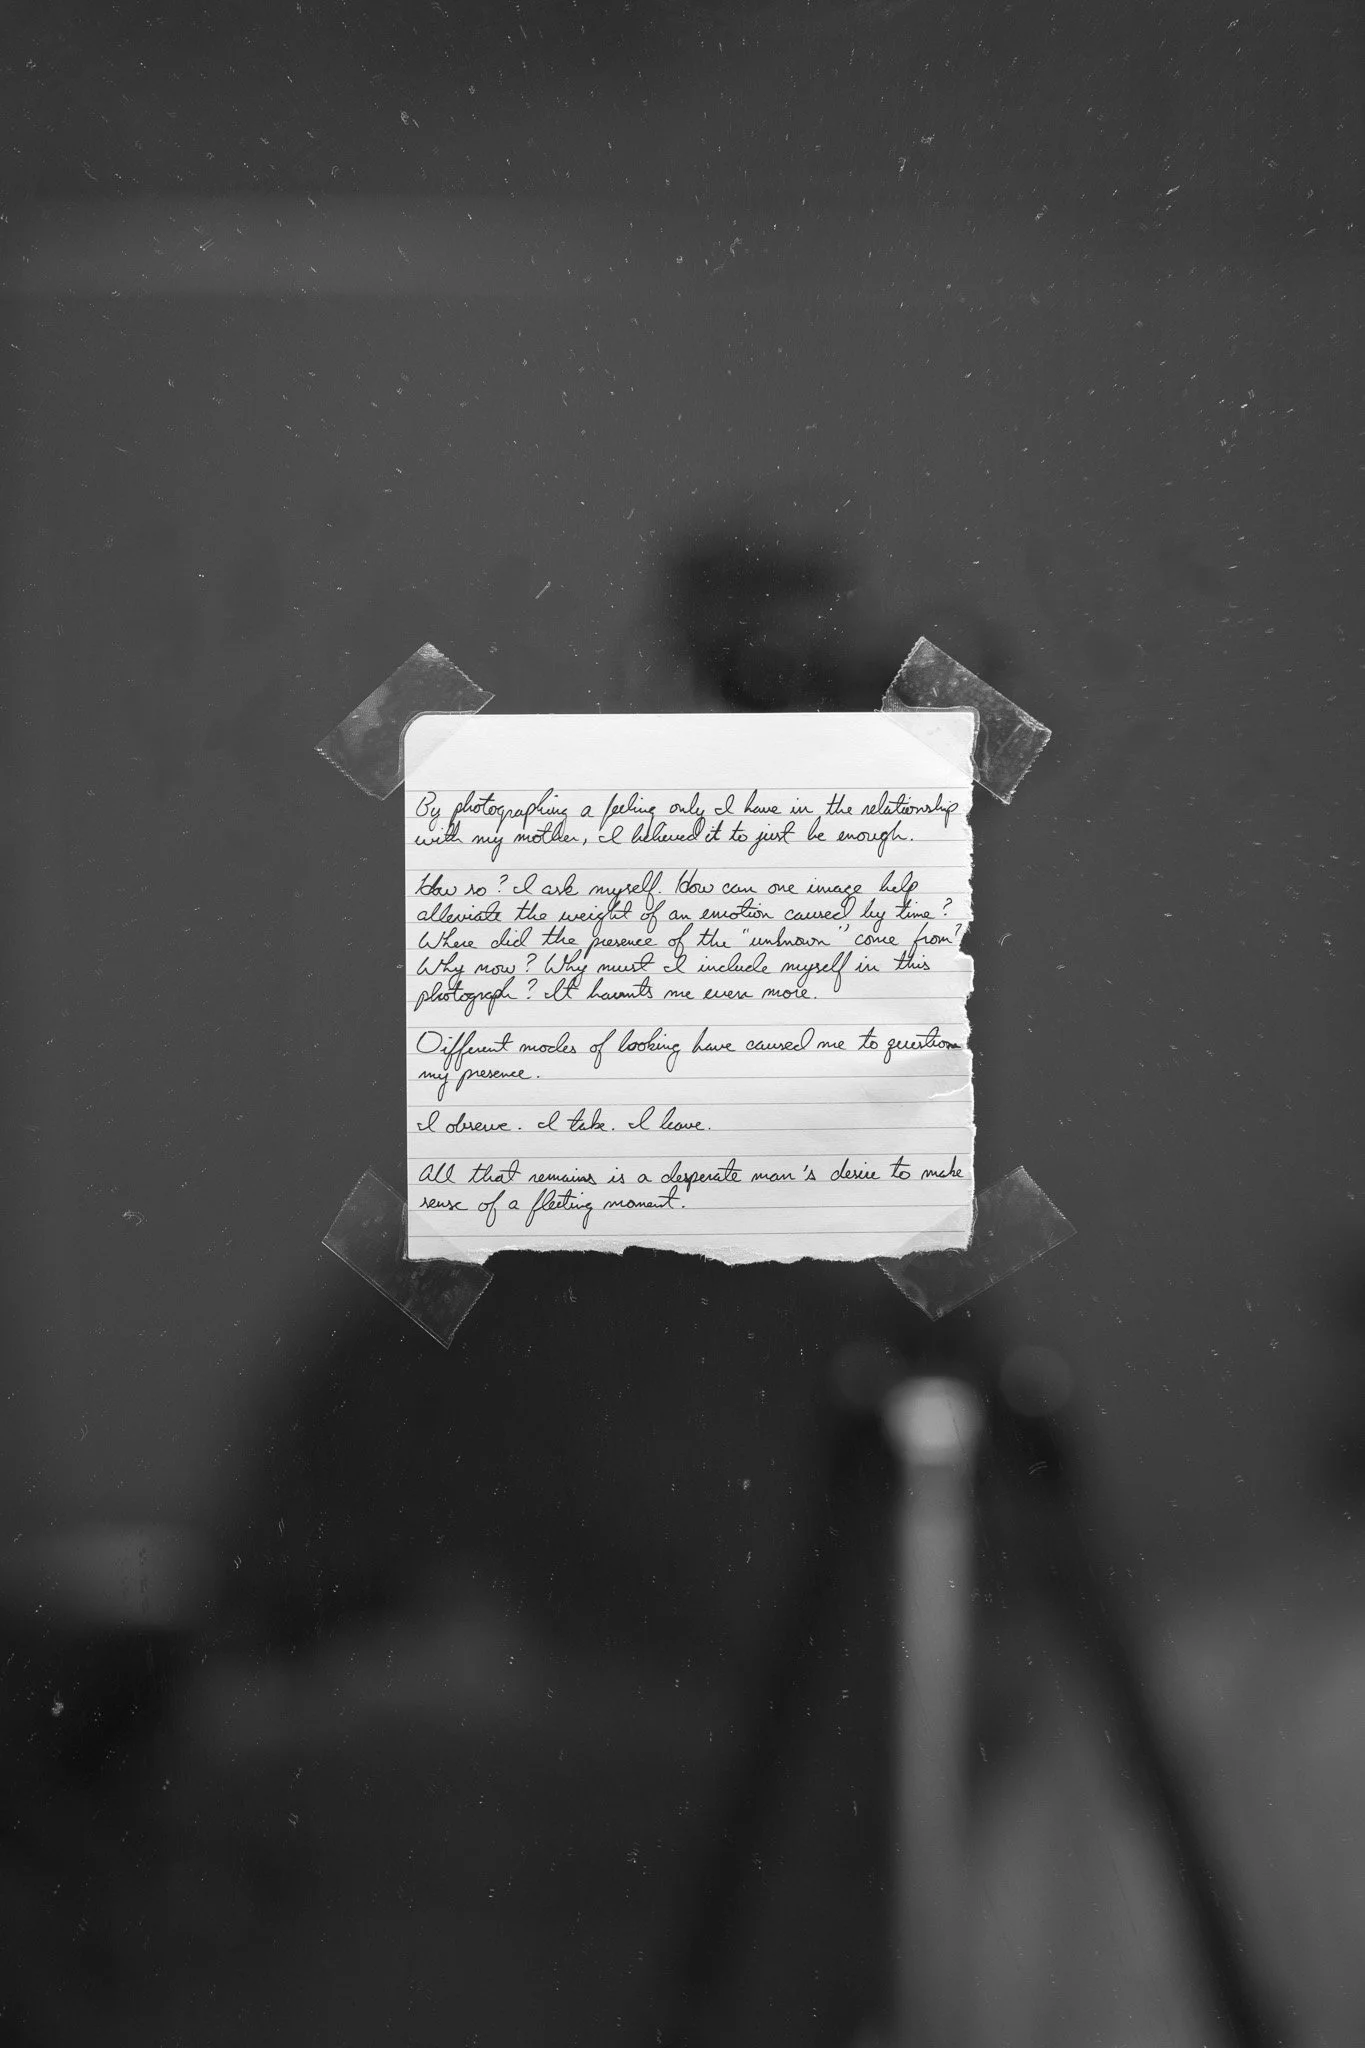 By photographing a feeling only I have in the relationship
with my mother, I believed it to just be enough.
How so? I ask myself. How can one image help
alleviate the weight of an emotion caused by time?
Where did the presence of the "unknown" come from?
Why now? Why must I include myself in this
photograph? It haunts me even more.
Different modes of looking have caused me to question
my presence.
I observe. I take. I leave.
All that remains is a desperate man's desire to make
sense of a fleeting moment.